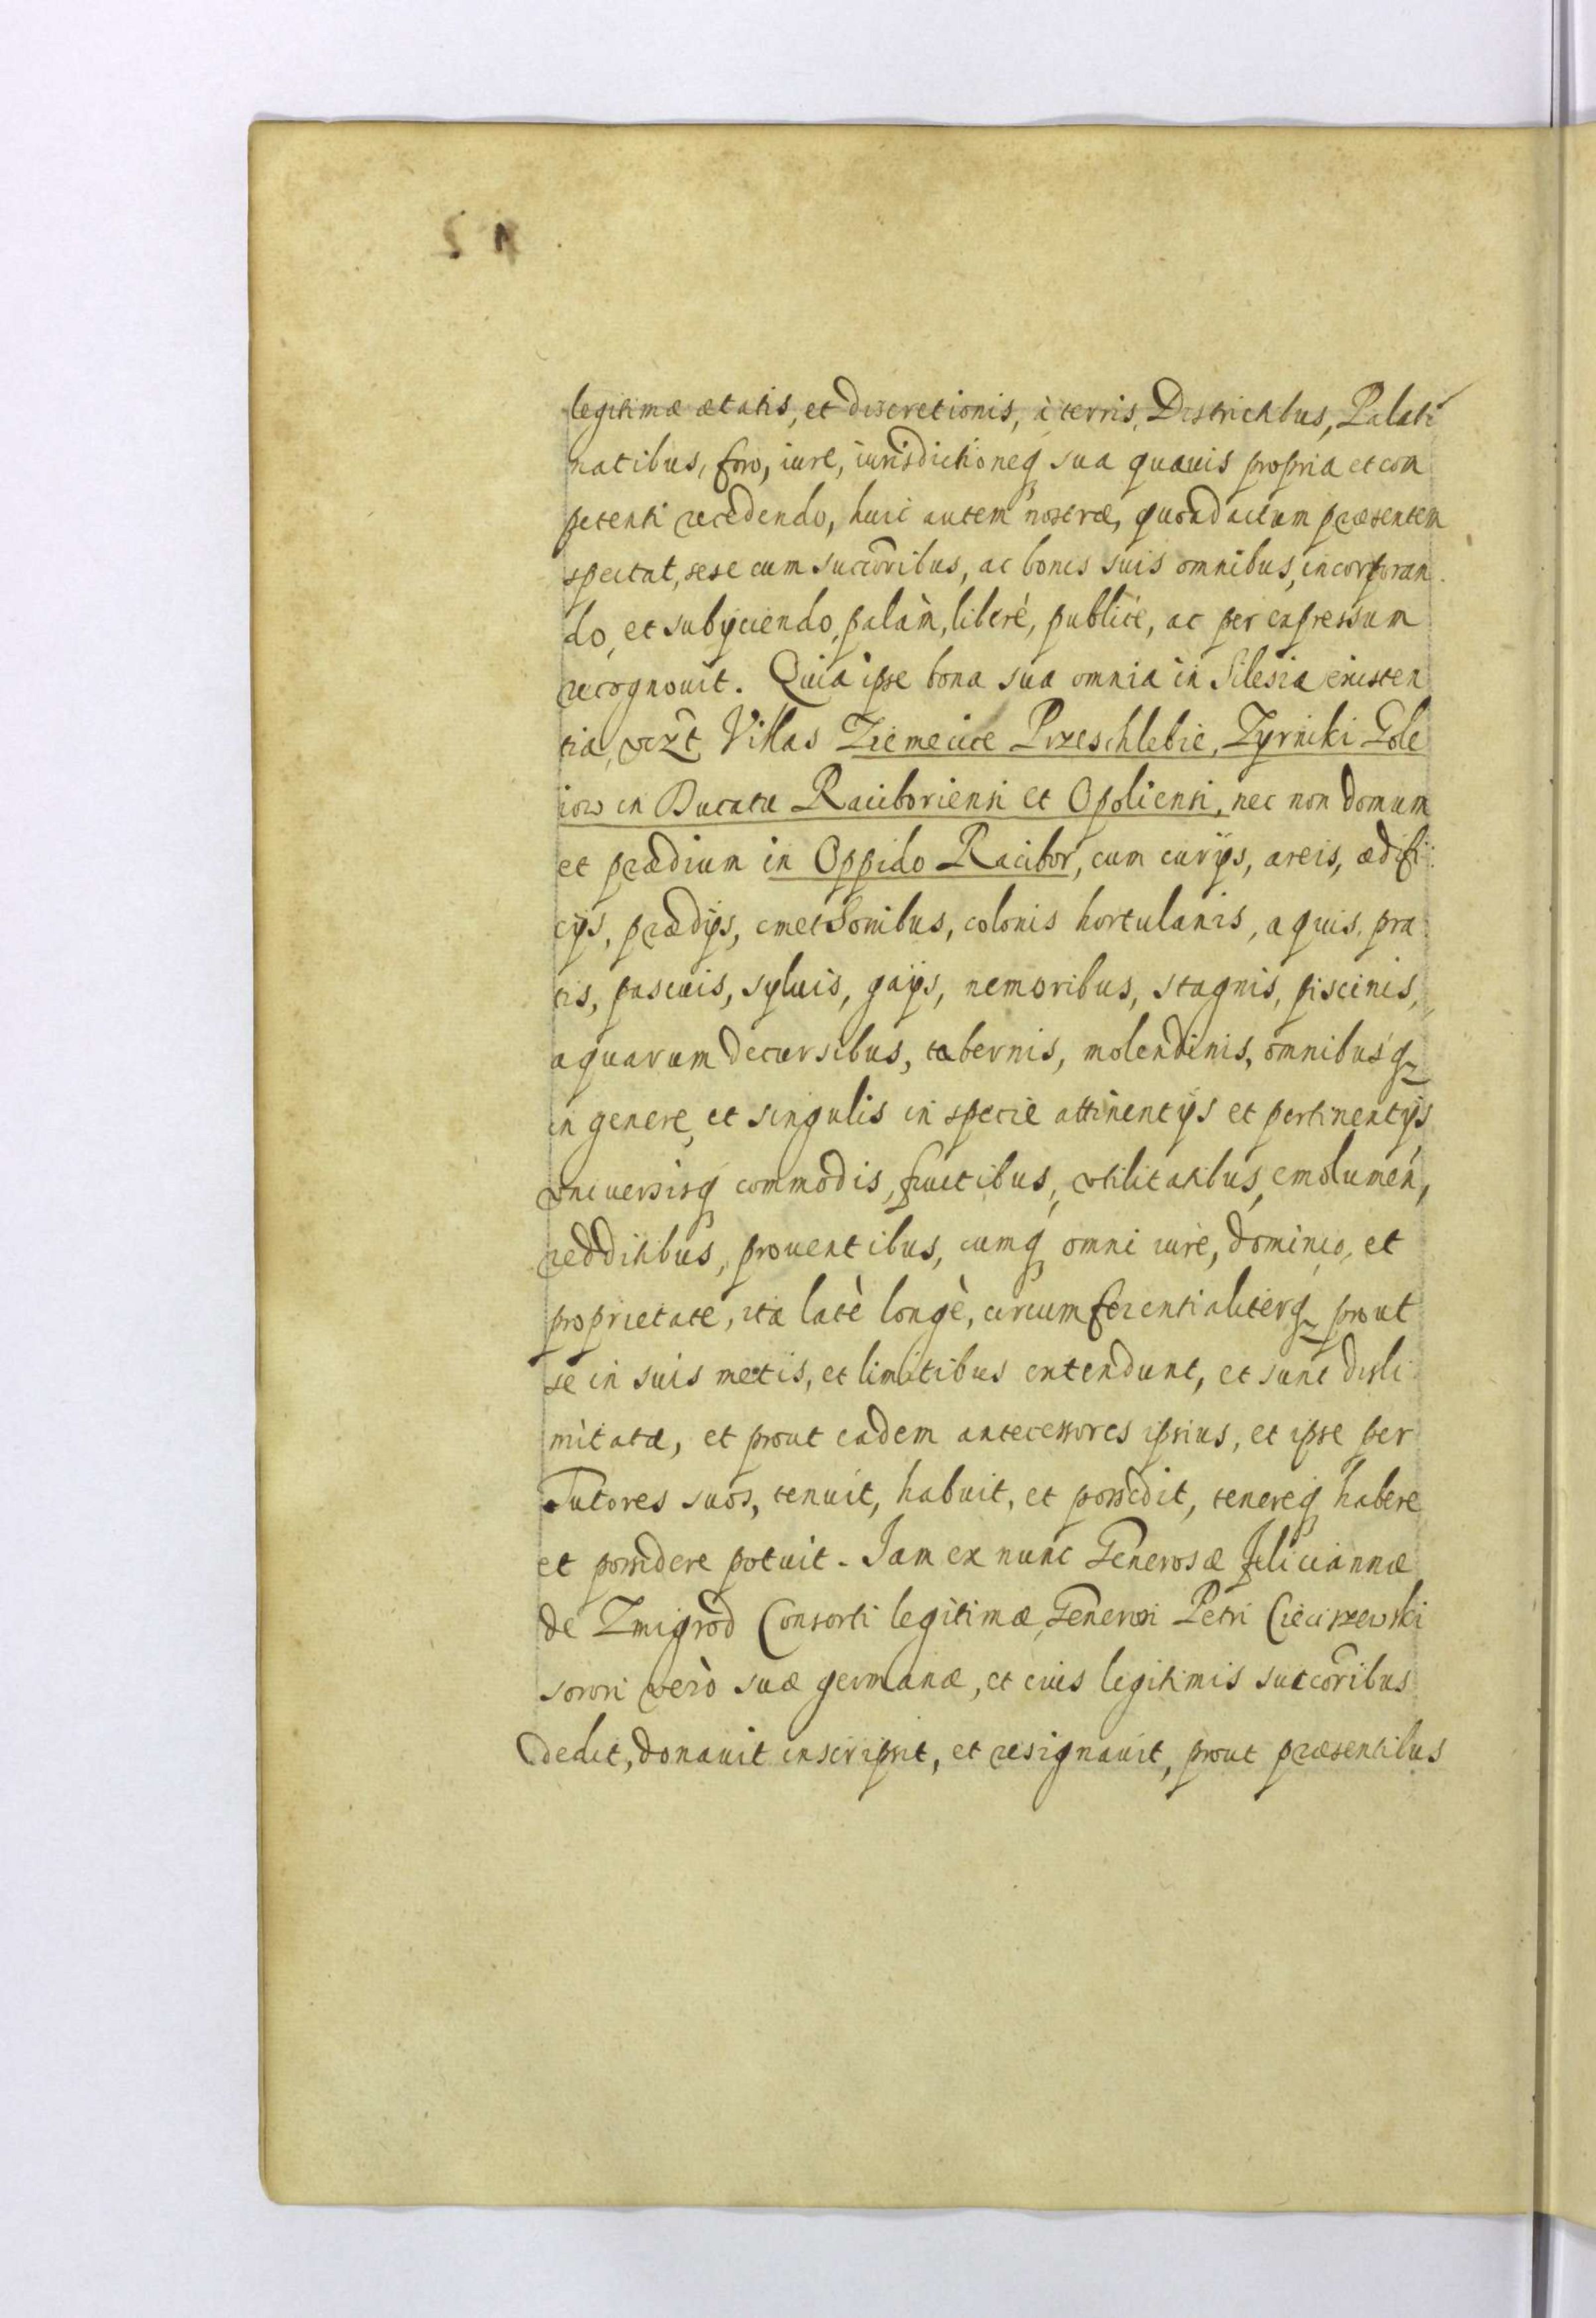 legitimæ ætatis, et discretionis, à terris, Districtibus, Palati
natibus, foro, iure, iurisdictioneq sua quauis propria et com
petenti recedendo, huic autem nostræ, quoad actum præsentem
spectat, sese cum succoribus, ac bonis suis omnibus, incorporan
do, et subyciendo, palàm, liberè, publicè, ac per expressum
recognouit. Quia ipse bona sua omnia in Silesia existen
tia, vizt Villas Ziemecice Przeschlebie, Zyrniki Gole
iow in Ducatu Raciboriensi et Opoliensi, nec non domum
et prædium in Oppido Racibor, cum curijs, areis, ædifi
cijs, prædijs, cmethonibus, colonis hortulanis, aquis, pra
tis, pascuis, syluis, gaijs, nemoribus, stagnis, piscinis,
aquarum decursibus, tabernis, molendinis, omnibusq
in genere, et singulis in specie attinentijs et pertinentijs
vniuersisq commodis, fructibus, vtilitatibus, emolumen,
redditibus, prouentibus, cumq omni iure, dominio, et
proprietate, ita latè longè, circumferentialiterq prout
se in suis metis, et limitibus extendunt, et sunt disli
mitatæ, et prout eadem antecessores ipsius, et ipse per
Tutores suos, tenuit, habuit, et possedit, tenereq habere
et possidere potuit. Iam ex nunc Generosæ Feliciannæ
de Zmigrod Consorti legitimæ, Generosi Petri Cieciszewski
sorori verò suæ germanæ, et eius legitimis succoribus
dedit, donauit inscripsit, et resignauit, prout præsentibus